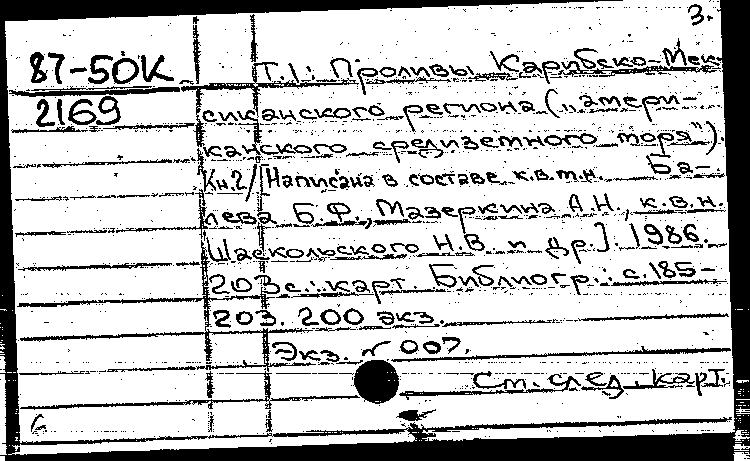 3.
87-50К
2169
Т.1: Проливы Карибско-Мек-
сиканского региона („амери-
канского средиземного моря").
Кн.2/[Написана в составе к.в.т.н. Ба-
лева Б.Ф., Мазеркина А.Н., к.в.н.
Шаскольского Н.В. и др.]. 1986.
203с.: карт. Библиогр.: с.185-
203. 200 экз.
Экз. № 007.
См. след. карт.
6